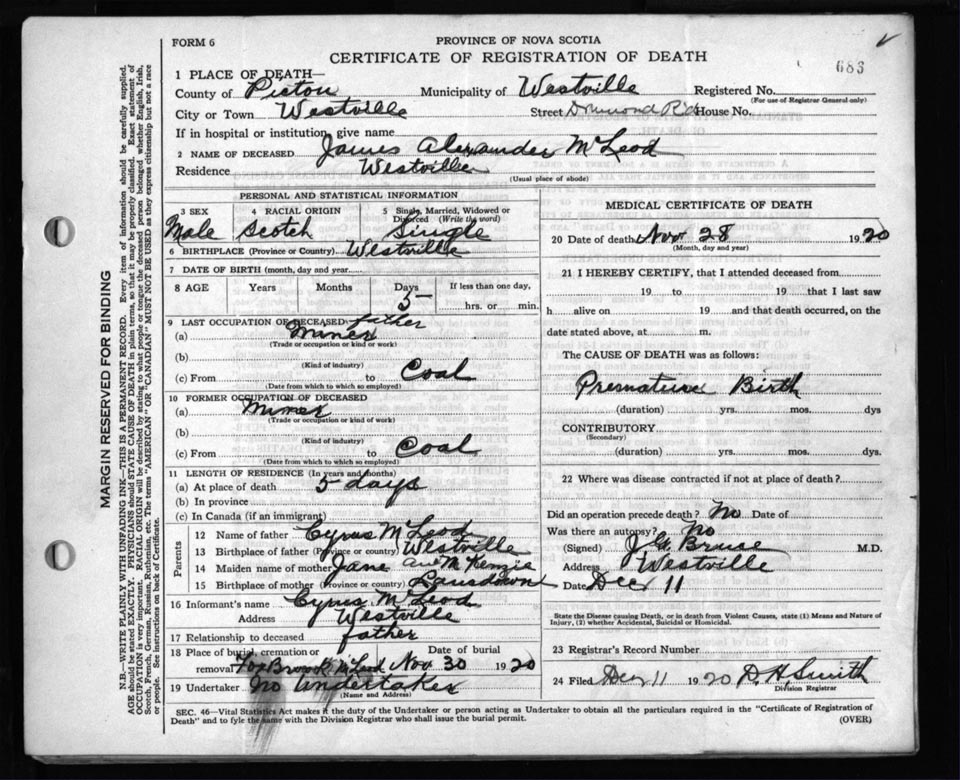 FORM 6
PROVINCE OF NOVA SCOTIA
CERTIFICATE OF REGISTRATION OF DEATH
683
1 PLACE OF DEATH—
County of Pictou Municipality of Westville Registered No.
(For use of Registrar General only)
City or Town Westville Street Drummond Rd House No.
If in hospital or institution, give name
2 NAME OF DECEASED James Alexander McLeod
Residence Westville
(Usual place of abode)
PERSONAL AND STATISTICAL INFORMATION
3 SEX 4 RACIAL ORIGIN 5 Single, Married, Widowed or Divorced (Write the word)
Male Scotch Single
6 BIRTHPLACE (Province or Country) Westville
7 DATE OF BIRTH (month, day and year)
8 AGE Years Months Days If less than one day,
5 hrs. or min.
9 LAST OCCUPATION OF DECEASED father
(a) Miner
(Trade or occupation or kind or work)
(b)
(Kind of industry)
(c) From to Coal
(Date from which to which so employed)
10 FORMER OCCUPATION OF DECEASED
(a) Miner
(Trade or occupation or kind of work)
(b)
(Kind of industry)
(c) From to Coal
(Date from which to which so employed)
11 LENGTH OF RESIDENCE (In years and months)
(a) At place of death 5 days
(b) In province
(c) In Canada (if an immigrant)
Parents
12 Name of father Cyrus McLeod
13 Birthplace of father (Province or country) Westville
14 Maiden name of mother Jane Ann McKenzie
15 Birthplace of mother (Province or country) Lansdown
16 Informant's name Cyrus McLeod
Address Westville
17 Relationship to deceased father
18 Place of burial, cremation or Date of burial
removal Fox Brook McLeod Nov 30 1920
19 Undertaker No Undertaker
(Name and Address)
MEDICAL CERTIFICATE OF DEATH
20 Date of death Nov 28 1920
(Month, day and year)
21 I HEREBY CERTIFY, that I attended deceased from
19 to 19 that I last saw
h alive on 19 and that death occurred, on the
date stated above, at m.
The CAUSE OF DEATH was as follows:
Premature Birth
(duration) yrs. mos. dys
CONTRIBUTORY
(Secondary)
(duration) yrs. mos. dys.
22 Where was disease contracted if not at place of death?
Did an operation precede death? No Date of
Was there an autopsy? No
(Signed) J. G. Bruse M.D.
Address Westville
Date Dec 11
State the Disease causing Death, or in death from Violent Causes, state (1) Means and Nature of
Injury, (2) whether Accidental, Suicidal or Homicidal.
23 Registrar's Record Number
24 Filed Dec 11 1920 D. H. Smith
Division Registrar
SEC. 46—Vital Statistics Act makes it the duty of the Undertaker or person acting as Undertaker to obtain all the particulars required in the "Certificate of Registration of
Death" and to fyle the same with the Division Registrar who shall issue the burial permit.
(OVER)
MARGIN RESERVED FOR BINDING
N.B.—WRITE PLAINLY WITH UNFADING INK—THIS IS A PERMANENT RECORD. Every item of information should be carefully supplied.
AGE should be stated EXACTLY. PHYSICIANS should STATE CAUSE OF DEATH in plain terms, so that it may be properly classified. Exact statement of
OCCUPATION is very important. RACIAL ORIGIN will be described by stating to what people or tongue the deceased person belonged whether English, Irish,
Scotch, French, German, Russian, Ruthenian, etc. The terms "AMERICAN" OR "CANADIAN" MUST NOT BE USED as they express citizenship but not a race
or people. See instructions on back of Certificate.